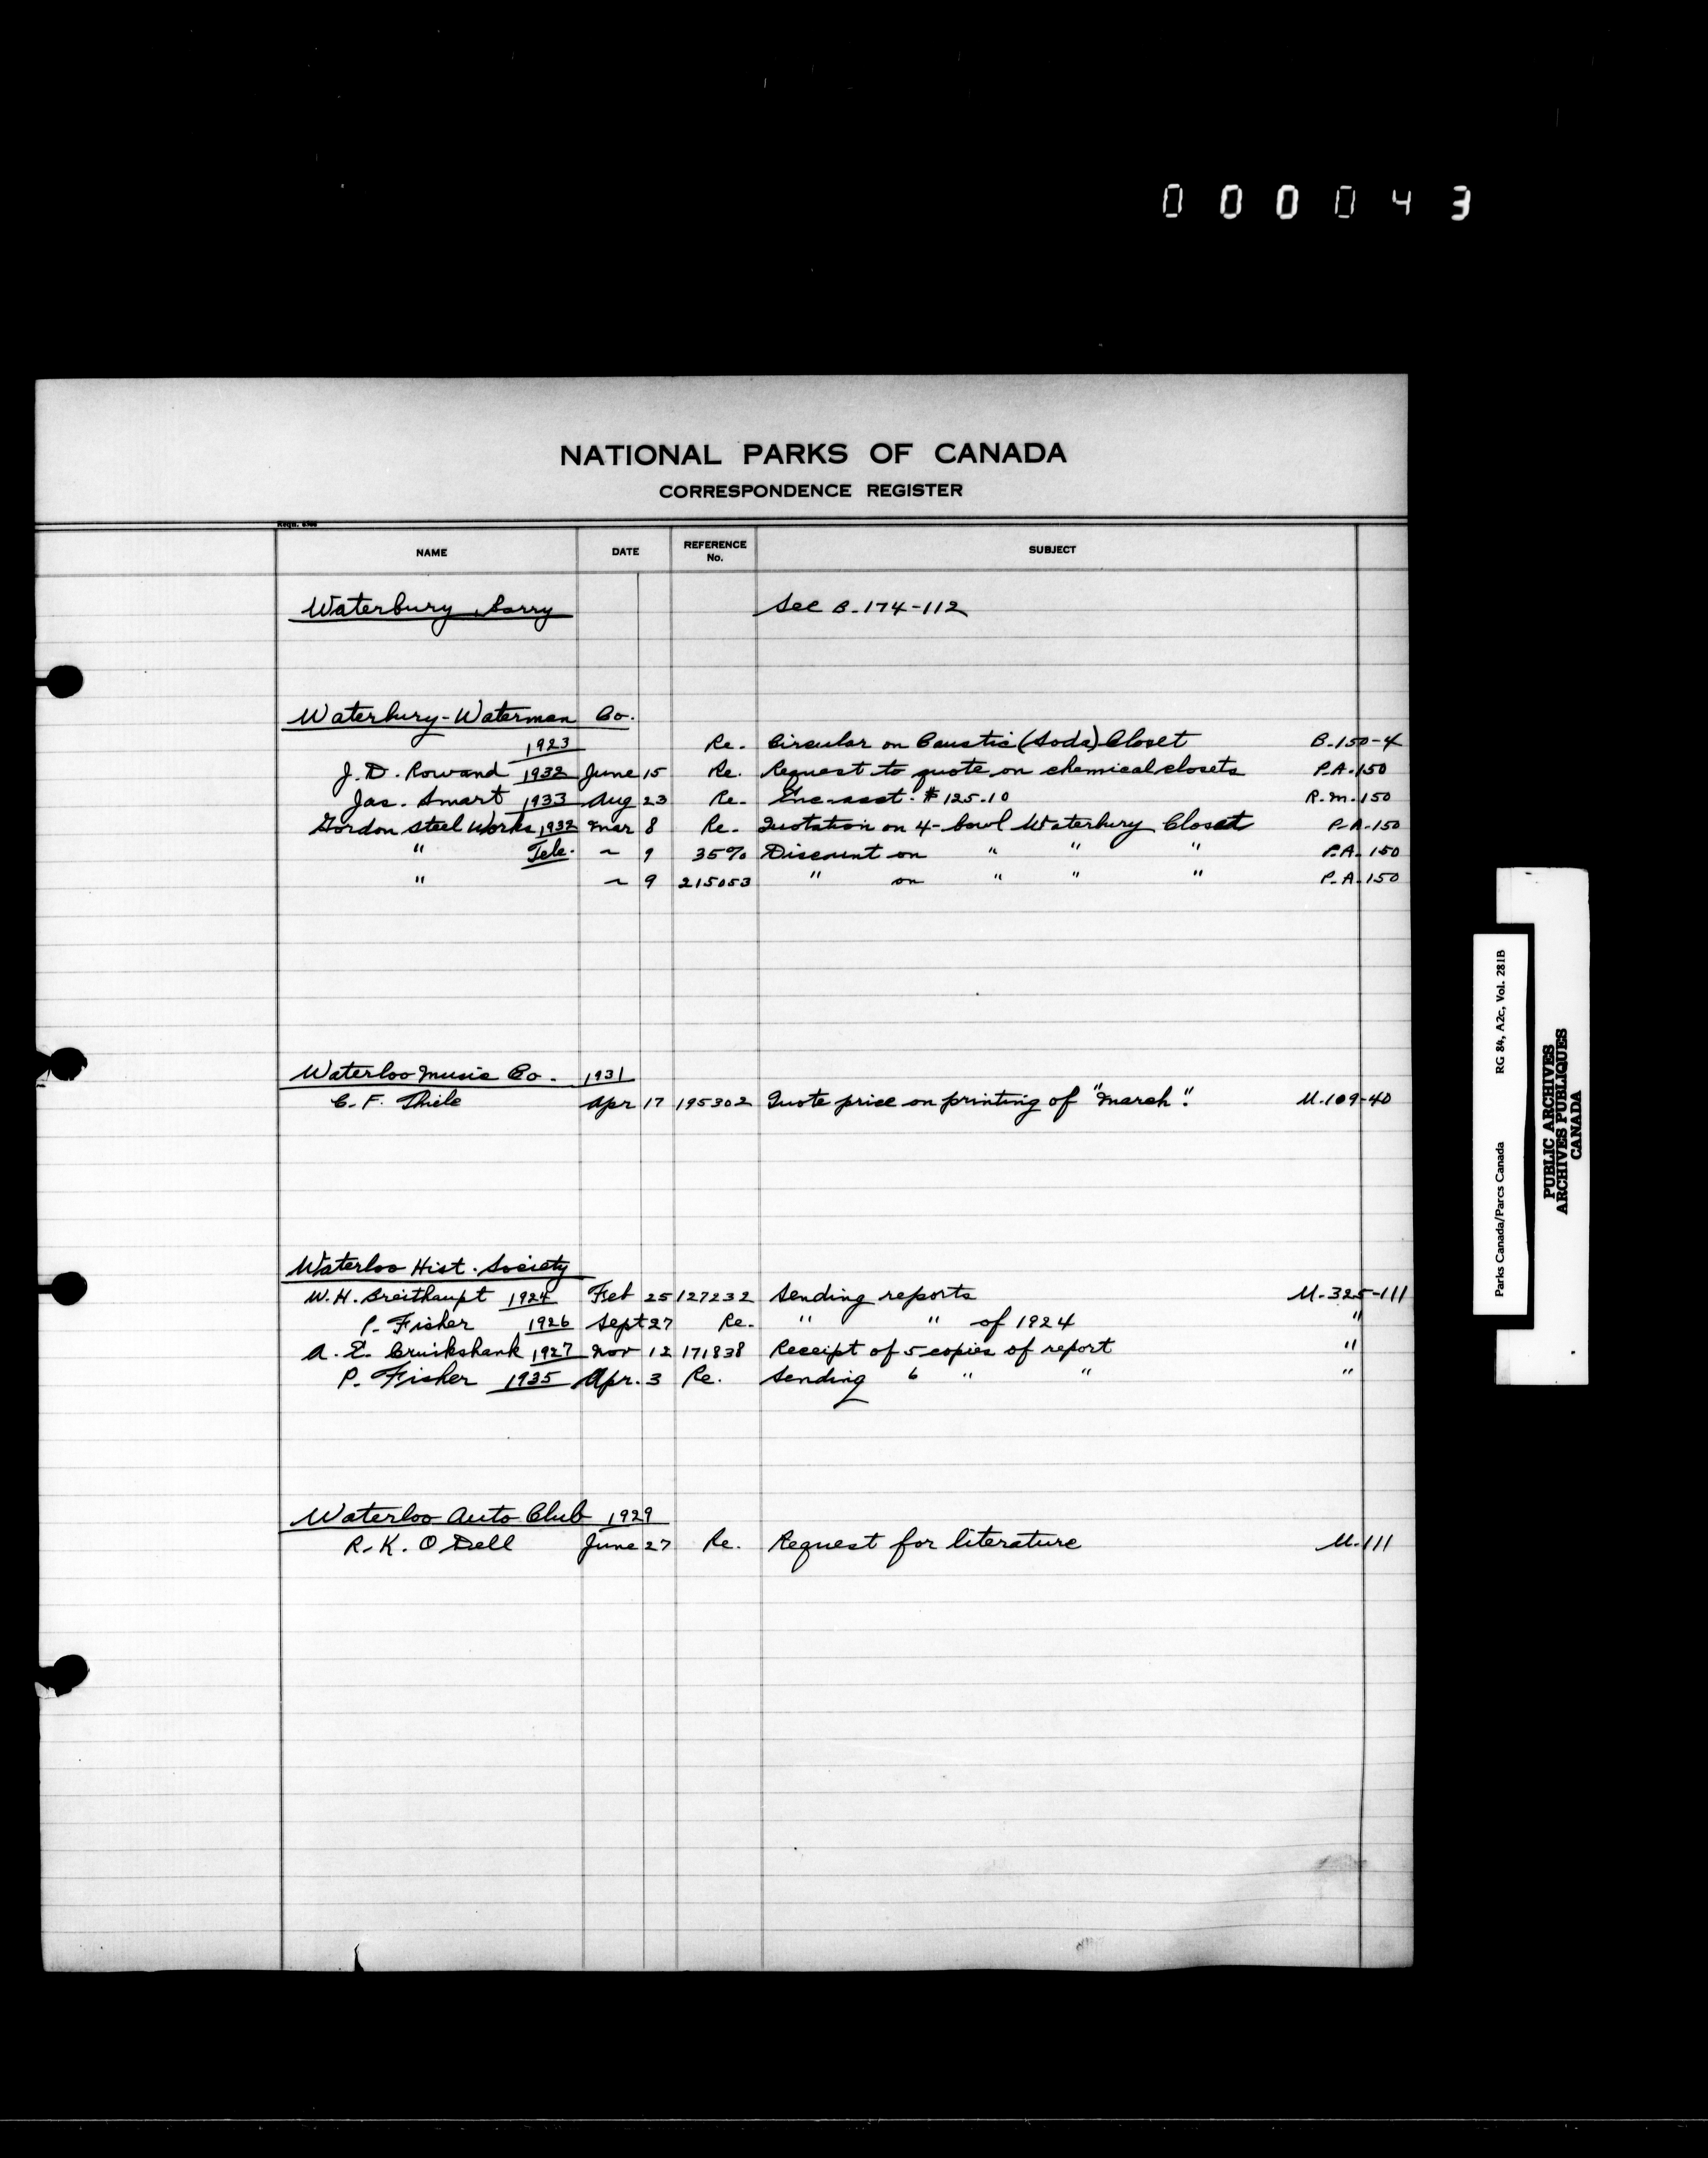 000043
NATIONAL PARKS OF CANADA
CORRESPONDENCE REGISTER
NAME DATE REFERENCE No. SUBJECT
Waterbury, See B.174-112
Waterbury-Waterman Co.
1923 Re. Circular on Caustic (Soda) Closet B.150-4
J. D. Rowand 1932 June 15 Re. Request to quote on chemical closets P.A.150
Jas. Smart 1933 Aug 23 Re. Enc. acct. $125.10 R.M.150
Gordon Steel Works 1932 Mar 8 Re. Quotation on 4-bowl Waterbury Closet P.A.150
" Tele. ~ 9 35% Discount on " " " P.A.150
" ~ 9 215053 " on " " " P.A.150
Waterloo Music Co. 1931
C. F. Thiele Apr 17 195302 Quote price on printing of "March". U.109-40
Waterloo Hist. Society
W. H. Breithaupt 1924 Feb 25 127232 Sending reports U.325-111
P. Fisher 1926 Sept 27 Re. " " of 1924 "
A. E. Cruikshank 1927 Nov 12 171838 Receipt of 5 copies of report "
P. Fisher 1935 Apr. 3 Re. Sending 6 " " "
Waterloo Auto Club 1929
R. K. O Dell June 27 Re. Request for literature U.111
Parks Canada/Parcs Canada RG 84, A2c, Vol. 281B
PUBLIC ARCHIVES
ARCHIVES PUBLIQUES
CANADA